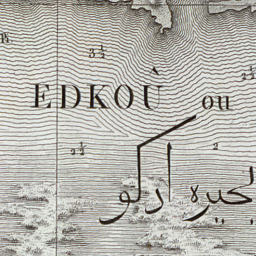 R.
3½
A
2½
EDKOÛ ou
2½
2
بحيره ادكو